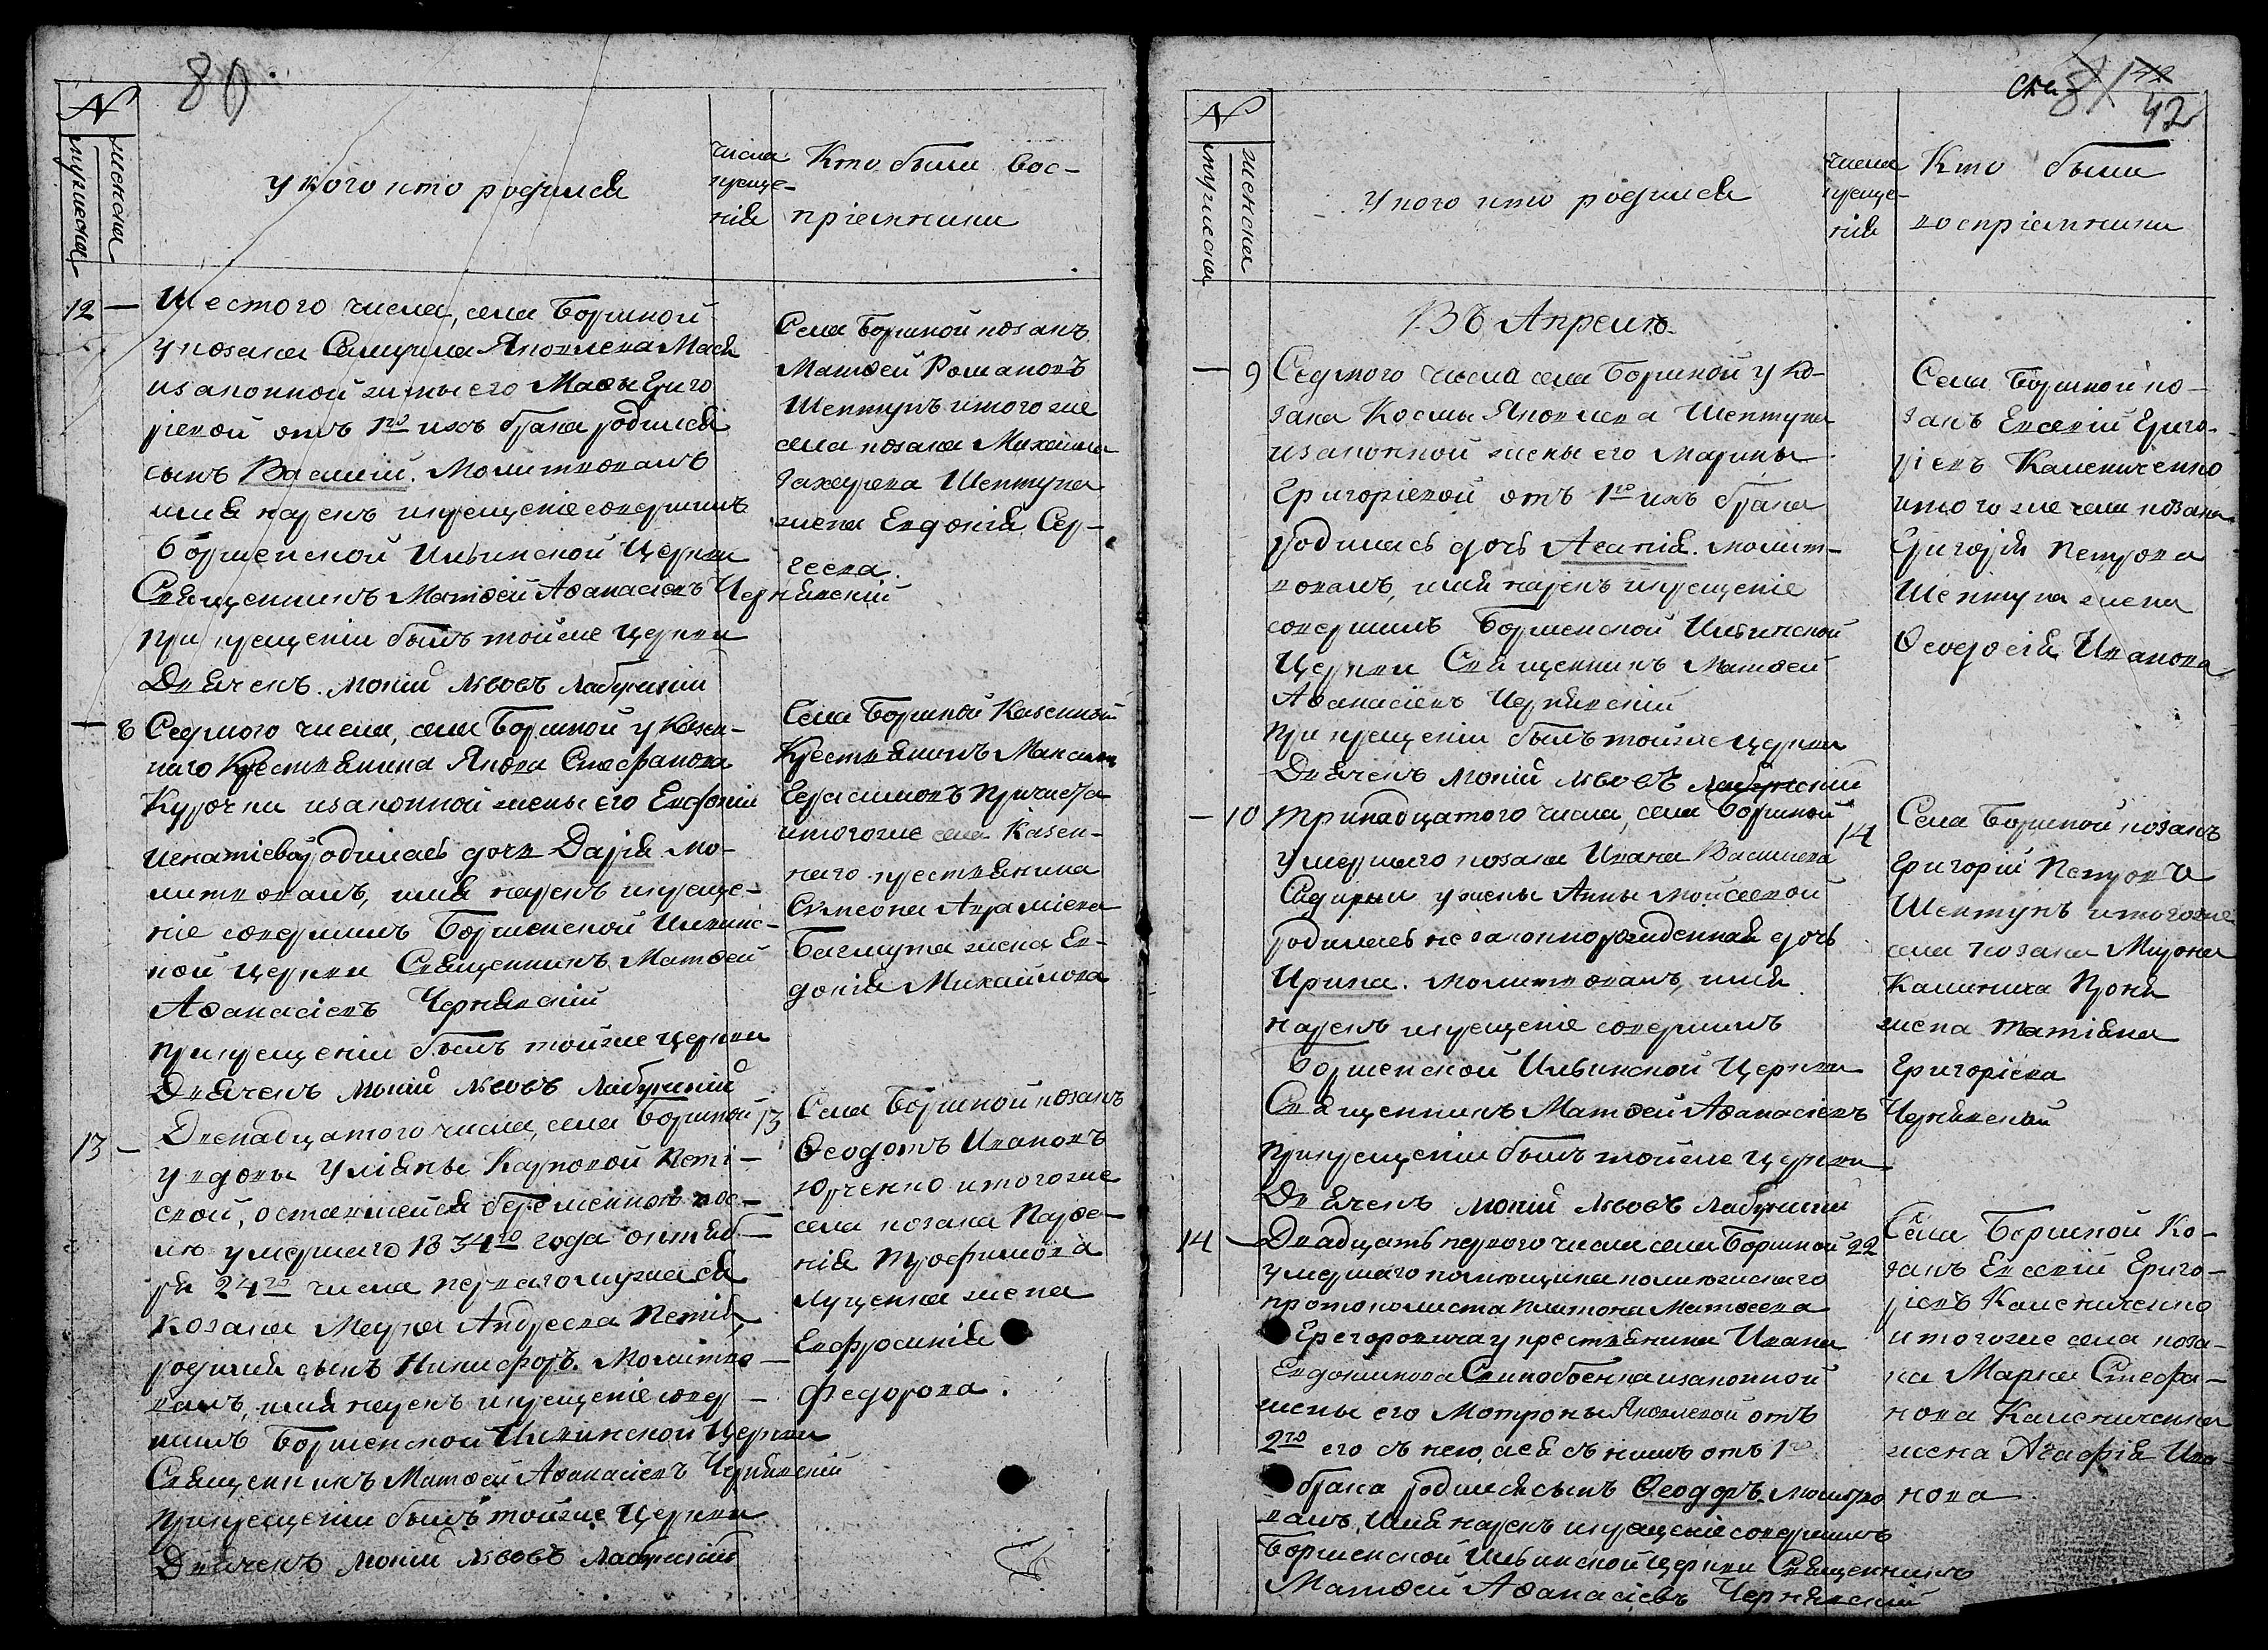 80
N
мужеска
женска
У кого кто родился
числа
креще-
нія
Кто были вос-
пріемники
12 —
Шестого числа, села Боршной
у козака Самуила Яковлева
изаконной жены его Григо
ріевой отъ 1го ихъ брака родился
сынъ Василій. Молитвовалъ
имя нарекъ икрещеніе совершилъ
Боршенской Ильинской Церкви
Священникъ Матѳей Аѳанасіевъ Чернявскій
При крещеніи былъ тойже церкви
Дьячекъ Мокій Львовъ Лабунскій
Села Боршной козакъ
Матѳей Романовъ
Шептунъ итого же
села козака Михаила
Захарева Шептуна
жена Евдокія Сер-
геева
— 8
Седмого числа, села Боршной у Казен-
наго Крестьянина Якова Стефанова
Курочки изаконной жены его Евдокіи
Игнатіевой родилась дочь Дарія. Мо-
литвовалъ, имя нарекъ икреще-
ніе совершилъ Боршенской Ильинс-
кой церкви Священникъ Матѳей
Аѳанасіевъ Чернявскій
При крещеніи былъ тойже церкви
Дьячекъ Мокій Львовъ Лабунскій
Села Боршной Казенный
Крестьянинъ Максимъ
Герасимовъ
итогоже села Казен-
наго крестьянина
Симеона Аврамiева
Баглуна жена Ев-
докія Михайлова
13 —
Двенадцатого числа, села Боршной
13
у вдовы Уліяны Карповой Петі-
ской, оставшейся беременною пос-
лѣ умершаго 1834го года октяб-
ря 24го числа перваго мужа ея
Козака Андреева
родился сынъ Никифоръ. Молитво-
валъ, имя нарекъ икрещеніе совер-
шилъ Боршенской Ильинской Церкви
Священникъ Матѳей Аѳанасіевъ Чернявскій
При крещеніи былъ тойже Церкви
Дьячекъ Мокій Львовъ Лабунскій
Села Боршной козакъ
Ѳеодотъ Ивановъ
Юрченко итогоже
села козака Парѳе-
нія Трофимова
Луценка жена
Евфросинія
Федорова.
81
42
N
мужеска
женска
У кого кто родился
числа
креще-
нія
Кто были
воспріемники
Въ Апреле.
— 9
Седмого числа села Боршной у Ко-
зака Космы Яковлева Шептуна
изаконной жены его Марины
Григоріевой отъ 1го ихъ брака
родилась дочь Агапія. Молит-
вовалъ, имя нарекъ икрещеніе
совершилъ Боршенской Ильинской
Церкви Священникъ Матѳей
Аѳанасіевъ Чернявскій
При крещеніи былъ тойже церкви
Дьячекъ Мокій Львовъ Лабунскій
Села Боршной ко-
закъ Евсевій Григо-
ріевъ Калениченко
итого же села козака
Григорія Петрова
Шептуна жена
Ѳеодосія Иванова
— 10
Тринадцатого числа, села Боршной
14
умершаго козака Ивана Василева
у жены Анны Мойсеевой
родилась незаконнорожденная дочь
Ирина. Молитвовалъ, имя
нарекъ икрещеніе совершилъ
Боршенской Ильинской Церкви
Священникъ Матѳей Аѳанасіевъ Чернявскій
При крещеніи былъ тойже церкви
Дьячекъ Мокій Львовъ Лабунскій
Села Боршной козакъ
Григорій Петровъ
Шептунъ итогоже
села козака Мирона
Калиника
жена Татіяна
Григоріева
14 —
Двадцать первого числа села Боршной
22
умершаго помещика коллежскаго
протоколиста Платона Матѳеева
Грегоровича у крестьянина Ивана
Евдокимова изаконной
жены его Мотроны Яковлевой отъ
2го его съ нею, аея съ нимъ отъ 1го
брака родился сынъ Ѳеодоръ. Молитво
валъ, имя нарекъ икрещеніе совершилъ
Боршенской Ильинской церкви Священникъ
Матѳей Аѳанасіевъ Чернявскій
Села Боршной Ко-
закъ Евсевій Григо-
ріевъ Калениченко
итогоже села коза-
ка Марка Стефа-
нова Каленичен­ка
жена Агафія Ива-
нова